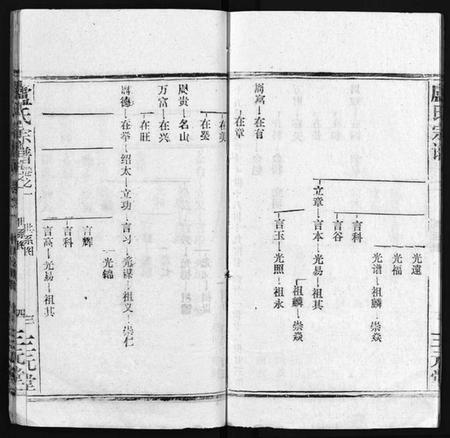 盧氏宗譜
三元堂
光遠
光福
光譜—祖麟—崇焱
言科
言谷
立章—言本—光易—祖其
祖麟—崇焱
言玉—光照—祖永
周富—在有
在章
在英
在晏
周貴—名山
万富—在兴
在旺
周德—在举—绍太—立功—言习—光谋—祖义—崇仁
光錦
言輝
言科
言高—光易—祖其
盧氏宗譜
卷之一
世系图
三元堂